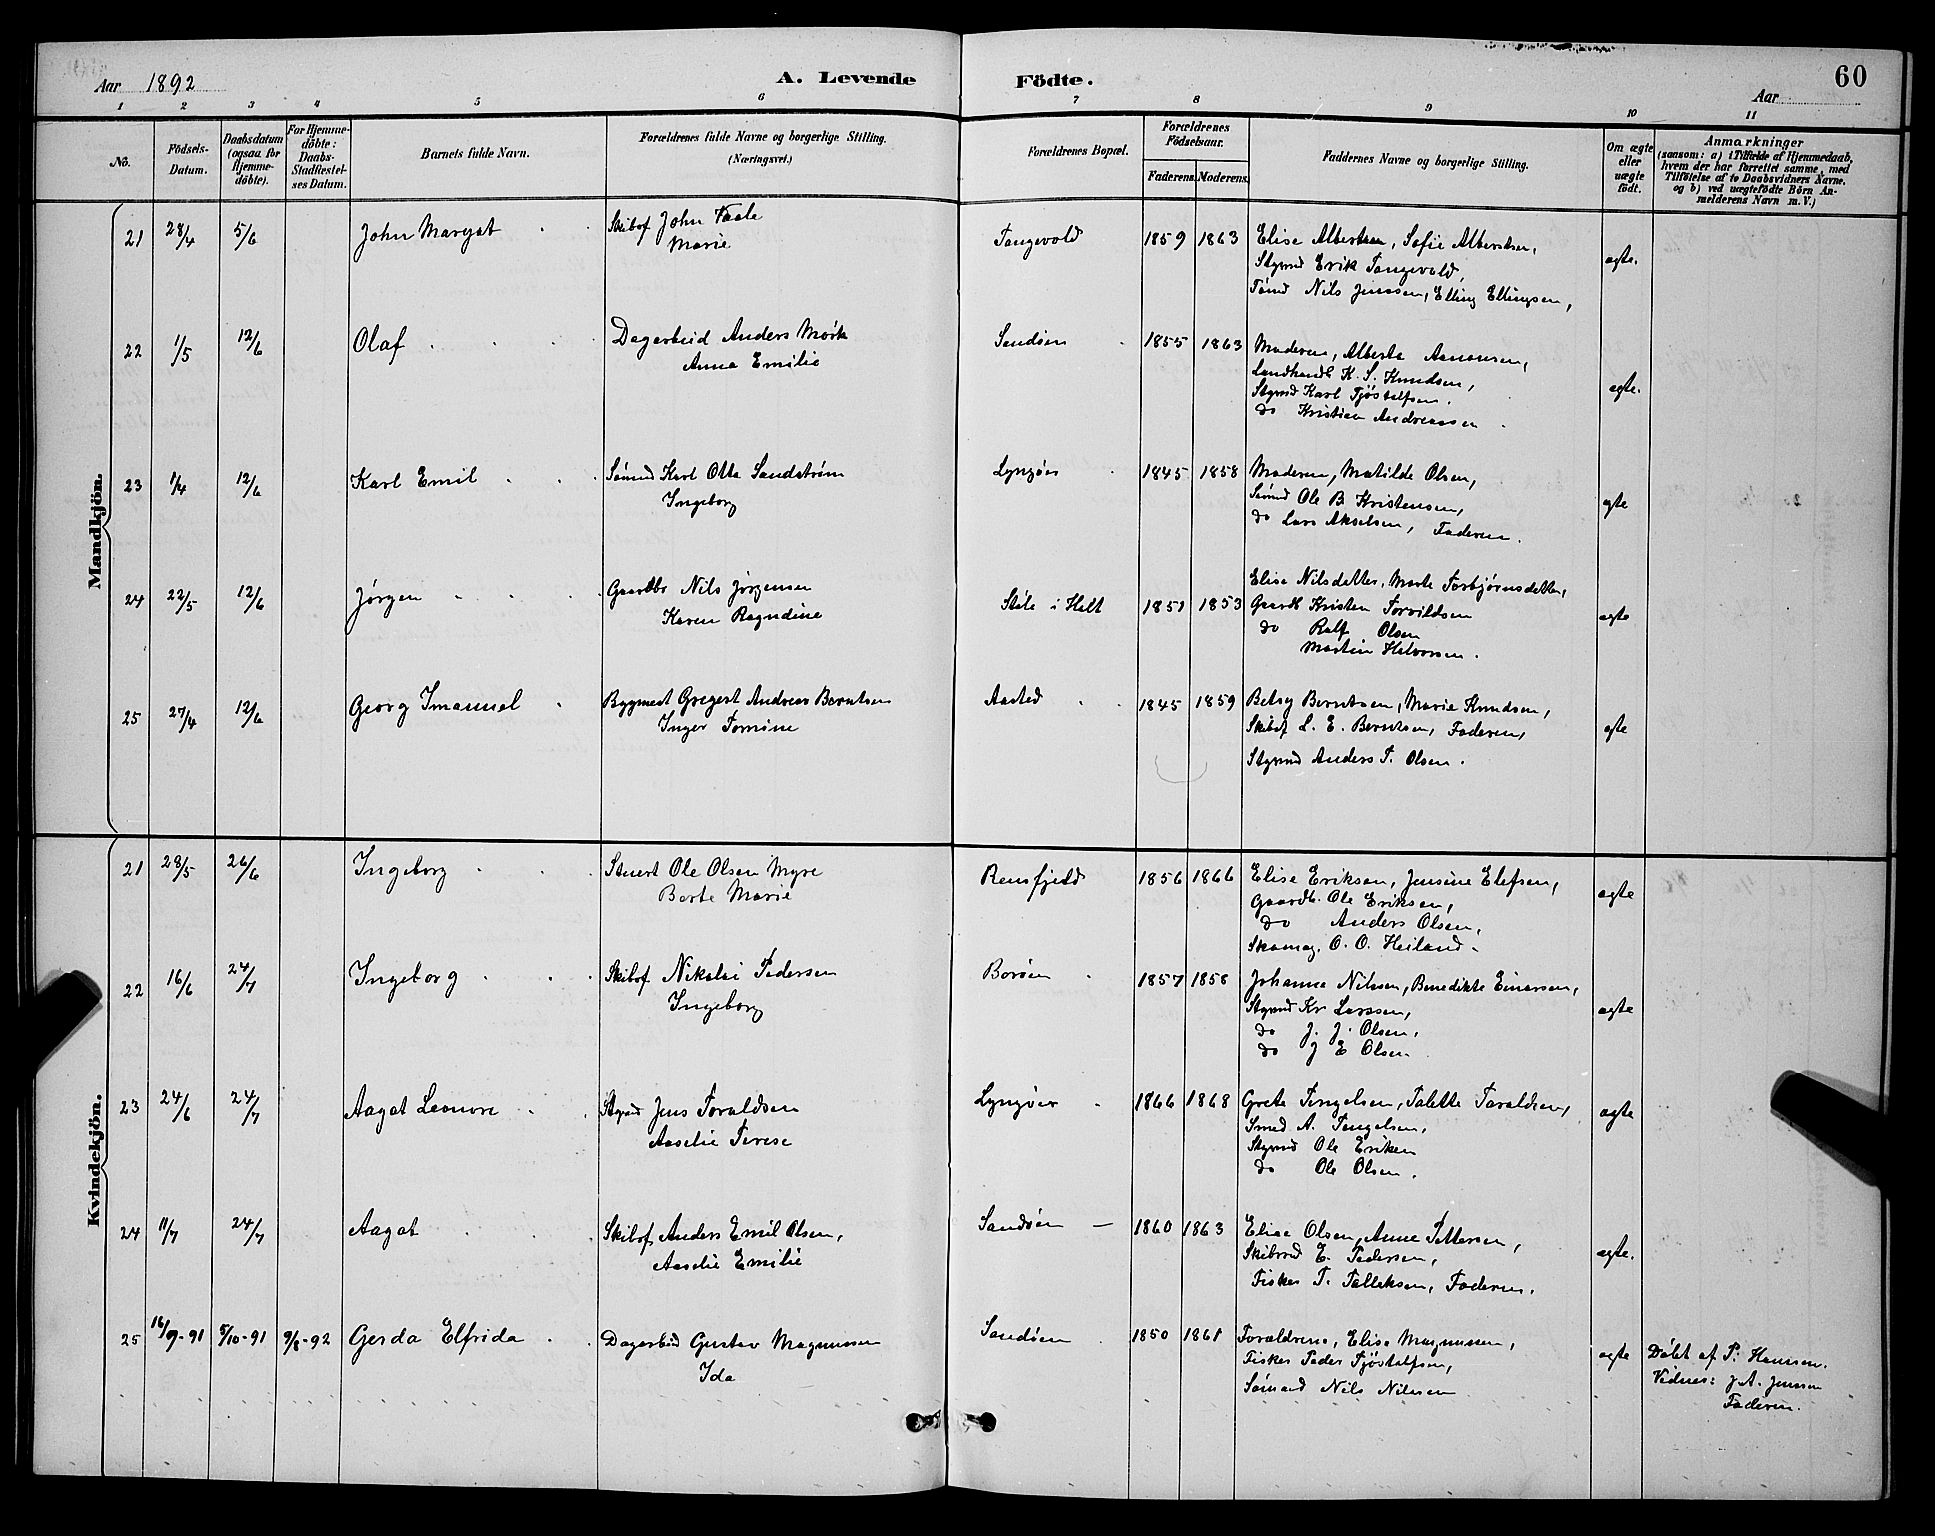 Aar 1892
A. Levende Födte.
60
Aar
1 2 3 4 5 6 7 8 9 10 11
No.
Födsels-Datum.
Daabsdatum (ogsaa for Hjemme-döbte).
For Hjemme-döbte: Daabs-Stadfæstel-ses Datum.
Barnets fulde Navn.
Forældrenes fulde Navne og borgerlige Stilling. (Næringsvei.)
Forældrenes Bopæl.
Forældrenes Födselsaar.
Faderens. Moderens.
Faddernes Navne og borgerlige Stilling.
Om ægte eller uægte födt.
Anmarkninger
(saasom: a) i Tilfælde af Hjemmedaab, hvem der har forrettet samme, med Tilföielse af to Daabsvidners Navne, og b) ved uægtefödte Börn An-melderens Navn m. V.)
Mandkjön.
21 28/4 5/6 John Margat Skibsf John Vaale
Marie
Tangevold 1859 1863 Elise Albertsen, Sofie Albertsen,
Stymd Erik Tangevold,
Tømd Nils Jenssen, Elling Ellingsen,
ægte.
22 1/5 12/6 Olaf Dagarbeid Anders Mørk
Anna Emilie
Sandøen 1855 1863 Moderen, Alberte Aanonsen,
Landhandl K. S. Knudsen,
Stymd Karl Tjøstelfsen.
do Kristian Andreassen
ægte.
23 1/4 12/6 Karl Emil Sømnd Karl Otto Sandstrøm
Ingeborg
Lyngør 1845 1858 Moderen, Matilde Olsen,
Sømd Ole B Kristensen,
do Lars Akselsen, Faderen.
ægte
24 22/5 12/6 Jørgen Gaardbr Nils Jørgensen
Karen Ragndine
Støle i Holt 1851 1853 Elise Nilsdatter, Marte Torbjørnsdatter,
Gaardb Kristen Torvildsen
do Rolf Olsen
Martin Halvorsen.
ægte
25 27/4 12/6 Georg Imanuel Bygmest Gregert Andreas Berntsen
Inger Tomine
Aasted 1845 1859 Betsy Berntsen, Marie Knudsen,
Skibsf L. E. Berntsen, Faderen,
Stymd Anders T. Olsen.
ægte
Kvindekjön.
21 28/5 26/6 Ingeborg Stuert Ole Olsen Myre
Berte Marie
Rensfjeld 1856 1866 Elise Eriksen, Jensine Elefsen,
Gaardb. Ole Eriksen,
do Anders Olsen,
Skomag. O. O. Heiland.
ægte
22 16/6 24/7 Ingeborg Skibsf Nikolai Pedersen
Ingeborg
Borøen 1857 1858 Johanne Nilssen, Benedikte Einersen,
Stymd Kr Larssen,
do J. J. Olsen,
do J E Olsen
ægte
23 24/6 24/7 Aagot Leonore Stymd Jens Taraldsen
Aaselie Terese
Lyngør 1866 1868 Grete Tengelsen, Talette Taraldsen,
Smed A. Tengelsen,
Stymd Ole Eriksen
do Ole Olsen.
ægte
24 11/7 24/7 Aagot Skibsf Anders Emil Olsen,
Aaselie Emilie
Sandøen 1860 1863 Elise Olsen, Anne Pettersen,
Skibsrd E. Pedersen,
Fisker T. Talleksen, Faderen.
ægte.
25 16/9-91 5/10-91 9/8-92 Gerda Elfrida Dagarbeid Gustav Magnussen
Ida
Sandøen 1850 1861 Forældrene, Elise Magnussen,
Fisker Peder Tjøstelfsen,
Sømand Nils Nilssen
ægte Döbt af P. Hanssen.
Vidner: J. A. Jenssen
Faderen.